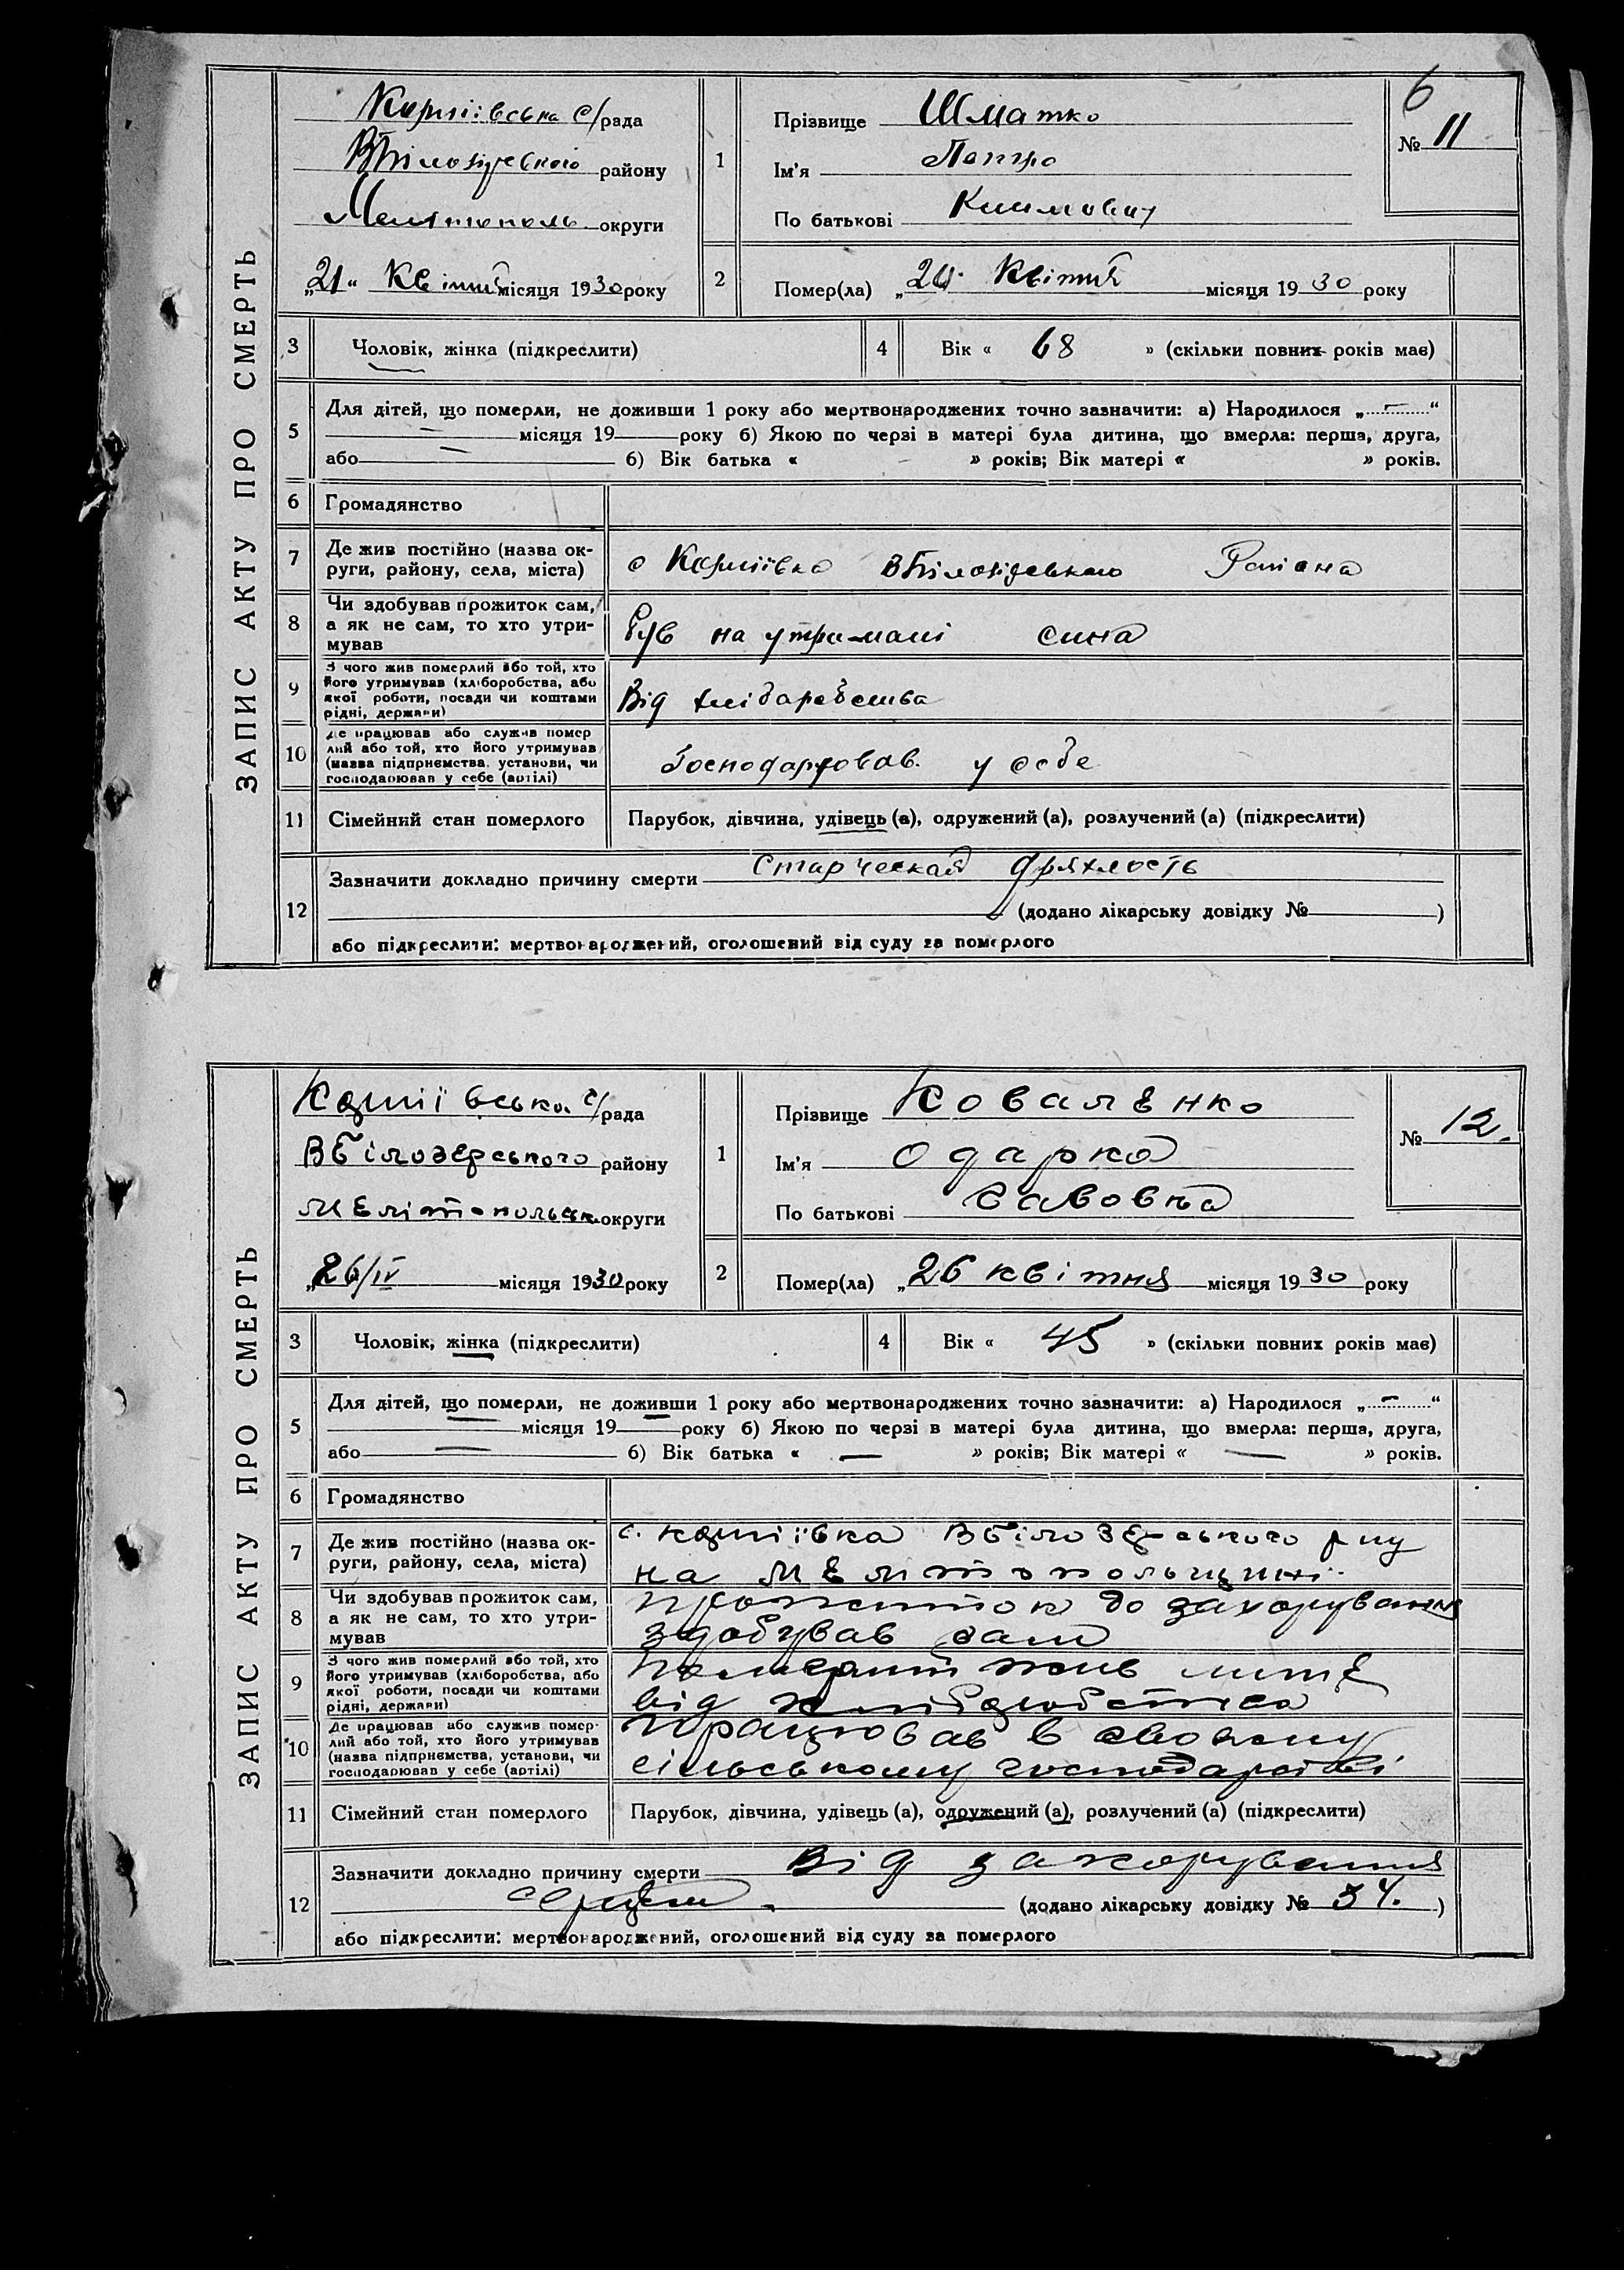 ЗАПИС АКТУ ПРО СМЕРТЬ
с/рада
району
Мелітополь округи
„21“ Квітня місяця 1930 року
1
Прізвище Шматко
Ім'я Петро
По батькові Климович
6
№ 11
2
Помер(ла) „20 Квітня місяця 1930 року
3
Чоловік, жінка (підкреслити)
4
Вік « 68 » (скільки повних років має)
5
Для дітей, що померли, не доживши 1 року або мертвонароджених точно зазначити: а) Народилося „ – “
— місяця 19 року б) Якою по черзі в матері була дитина, що вмерла: перша, друга,
або — б) Вік батька « – » років; Вік матері « » років.
6
Громадянство
7
Де жив постійно (назва ок-
руги, району, села, міста)
с ВБілозірського Району
8
Чи здобував прожиток сам,
а як не сам, то хто утри-
мував
був на утримані сина
9
З чого жив померлий або той, хто
його утримував (хліборобства, або
якої роботи, посади чи коштами
рідні, держави)
Від хліборобства
10
Де працював або служив помер
лий або той, хто його утримував
(назва підприємства, установи, чи
господарював у себе (артілі)
Господарував у себе
11
Сімейний стан померлого
Парубок, дівчина, удівець (а), одружений (а), розлучений (а) (підкреслити)
12
Зазначити докладно причину смерти Старческая дряхлость
(додано лікарську довідку № )
або підкреслити: мертвонароджений, оголошений від суду за померлого
ЗАПИС АКТУ ПРО СМЕРТЬ
с/рада
ВБілозерського району
Мелітопольськ. округи
„26/IV місяця 1930 року
1
Прізвище Коваленко
Ім'я Одарка
По батькові Савовна
№ 12.
2
Помер(ла) „26 квітня місяця 1930 року
3
Чоловік, жінка (підкреслити)
4
Вік « 45 » (скільки повних років має)
5
Для дітей, що померли, не доживши 1 року або мертвонароджених точно зазначити: а) Народилося „ – “
— місяця 19 — року б) Якою по черзі в матері була дитина, що вмерла: перша, друга,
або — б) Вік батька « — » років; Вік матері « — » років.
6
Громадянство
7
Де жив постійно (назва ок-
руги, району, села, міста)
с. ВБілозерського р-ну
на Мелітопольщині.
8
Чи здобував прожиток сам,
а як не сам, то хто утри-
мував
прожиток до захорування
здобував сам
9
З чого жив померлий або той, хто
його утримував (хліборобства, або
якої роботи, посади чи коштами
рідні, держави)
жив лише
від хліборобства
10
Де працював або служив помер-
лий або той, хто його утримував
(назва підприємства, установи, чи
господарював у себе (артілі)
працював в своєму
сільському господарстві.
11
Сімейний стан померлого
Парубок, дівчина, удівець (а), одружений (а), розлучений (а) (підкреслити)
12
Зазначити докладно причину смерти Від захорування
серця. (додано лікарську довідку № 34. )
або підкреслити: мертвонароджений, оголошений від суду за померлого